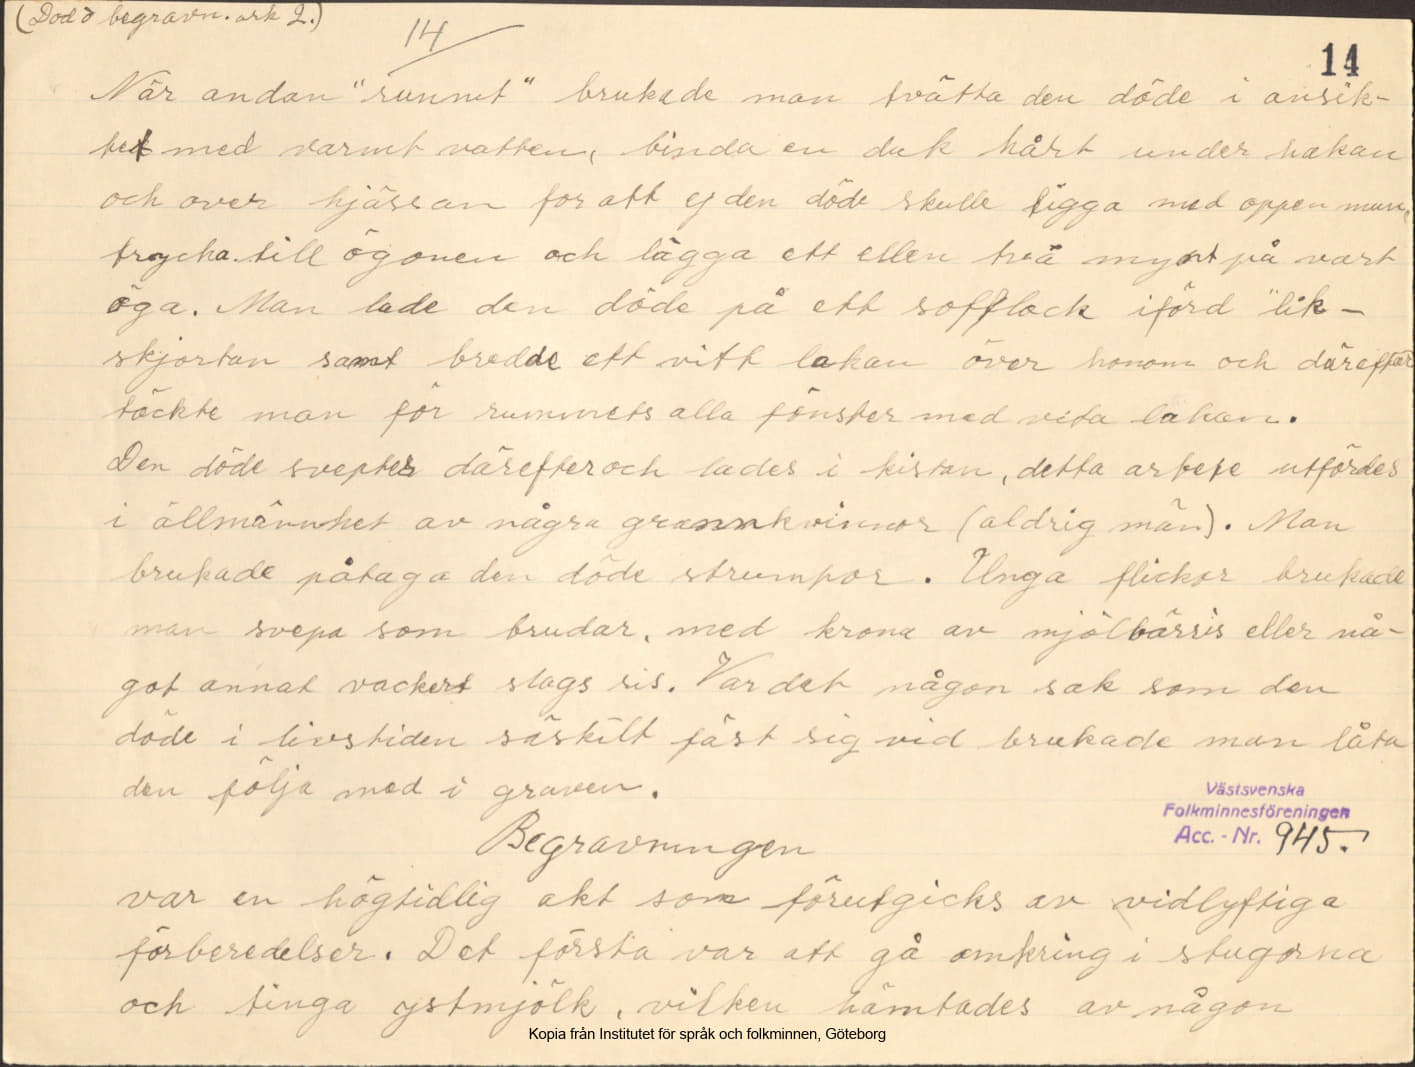 (Död o begravn. ark 2.)
14
14
När andan "runnit" brukade man tvätta den döde i ansik-
tet med varmt vatten, binda en duk hårt under hakan
och över hjässan för att ej den döde skulle ligga med öppen mun,
trycka till ögonen och lägga ett eller två mynt på vart
öga. Man lade den döde på ett sofflock iförd "lik-
skjortan samt bredde ett vitt lakan över honom och därefter
täckte man för rummets alla fönster med vita lakan.
Den döde sveptes därefter och lades i kistan, detta arbete utfördes
i allmännhet av några grannkvinnor (aldrig män). Man
brukade påtaga den döde strumpor. Unga flickor brukade
man svepa som brudar, med krona av mjölbärsris eller nå-
got annat vackert slags ris. Var det någon sak som den
döde i livstiden särskilt fäst sig vid brukade man låta
den följa med i graven.
Västsvenska
Folkminnesföreningen
Acc. - Nr. 945.
Begravningen
var en högtidlig akt som förutgicks av vidlyftiga
förberedelser. Det första var att gå omkring i stugorna
och tinga ystmjölk, vilken hämtades av någon
Kopia från Institutet för språk och folkminnen, Göteborg